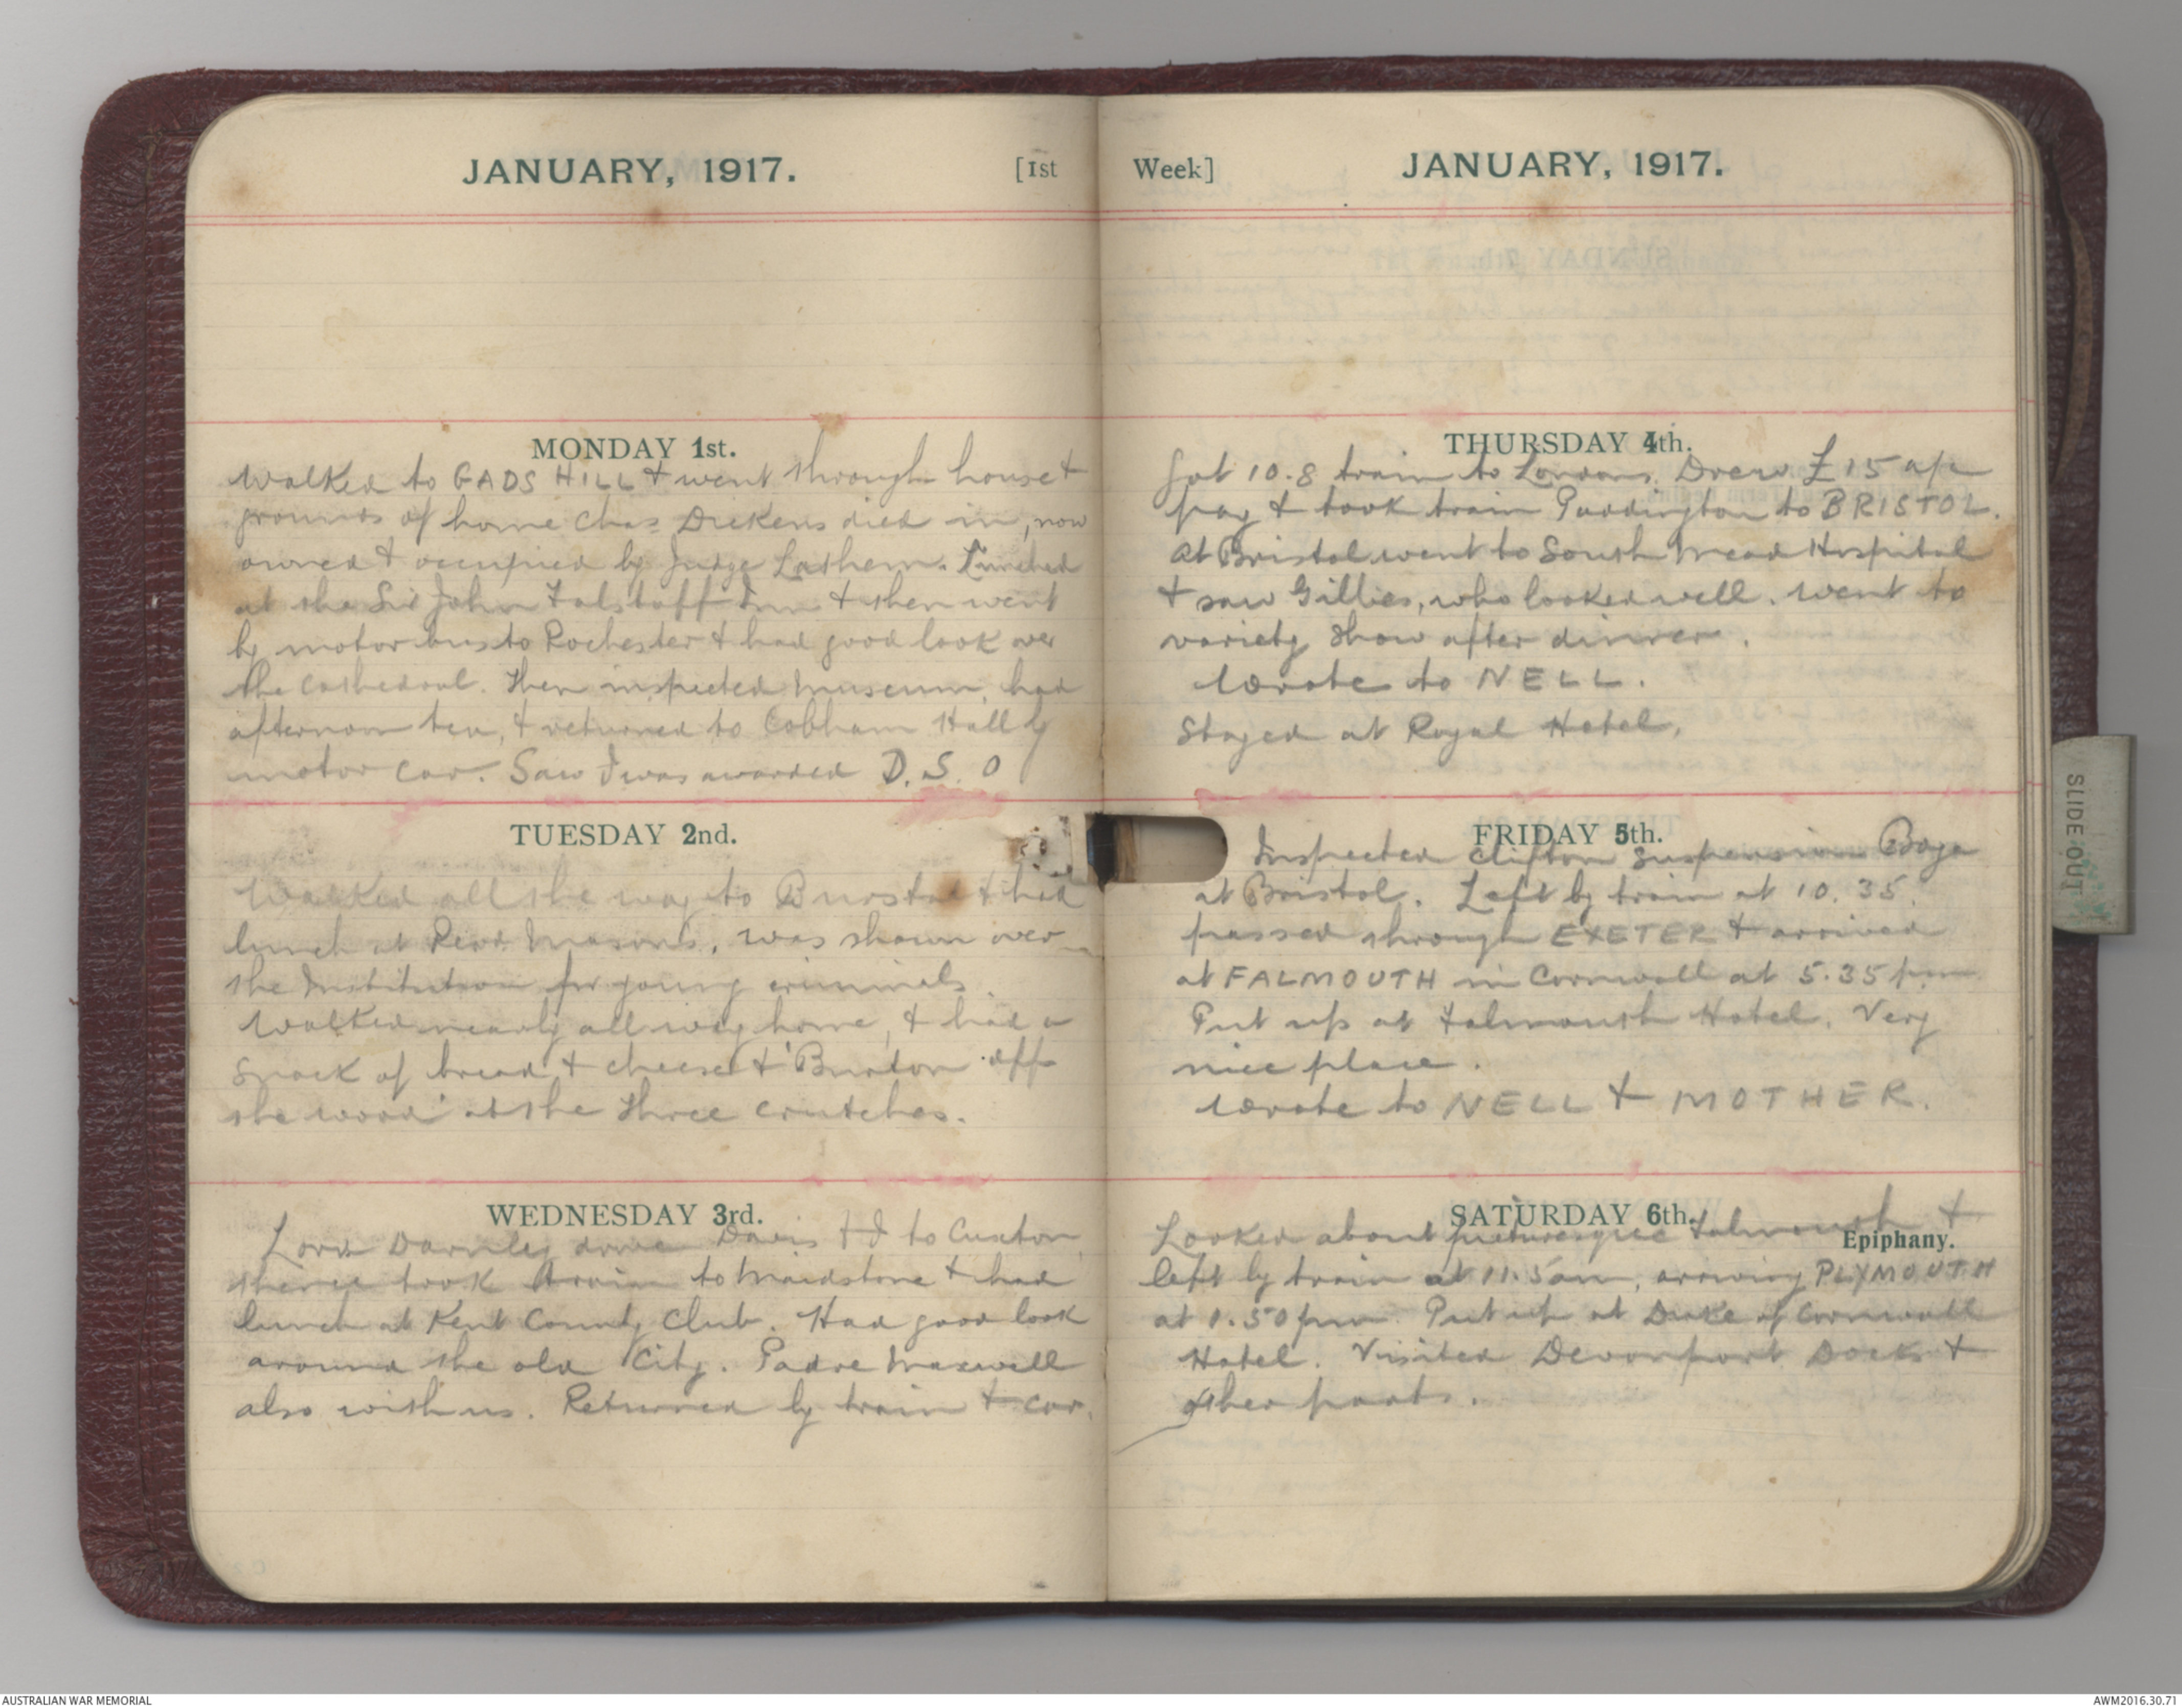 JANUARY, 1917. [1st
MONDAY 1st.
Walked to GADS HILL & went through house &
grounds of home Chas Dickens died in, now
owned & occupied by Judge Lathem. Lunched
at the Sir John Falstaff Inn & then went
by motor bus to Rochester & had good look over
the Cathedral. Then inspected Museum, had
afternoon tea, & returned to Cobham Hall by
motor car. Saw I was awarded D.S.O
TUESDAY 2nd.
Walked all the way to Burstal & had
lunch at Revd. Mason's, was shown over
the Institution for young criminals.
Walked nearly all way home, & had a
snack of bread & cheese & 'Burton off
the wood' at the Three Crutches.
WEDNESDAY 3rd.
Lord Darnley drove Davis & I to Cuxton,
thence took train to Maidstone & had
lunch at Kent County Club. Had good look
around the old City. Padre Maxwell
also with us. Returned by train & car.
Week] JANUARY, 1917.
THURSDAY 4th.
Got 10.8 train to London. Drew £15 a/c
pay & took train Paddington to BRISTOL.
At Bristol went to South Mead Hospital
& saw Gillies, who looked well. Went to
variety show after dinner.
Wrote to NELL.
Stayed at Royal Hotel.
FRIDAY 5th.
Inspected Clifton Suspension Bdge
at Bristol. Left by train at 10.35.
passed through EXETER & arrived
at FALMOUTH in Cornwall at 5.35 pm.
Put up at Falmouth Hotel. Very
nice place.
Wrote to NELL & MOTHER.
SATURDAY 6th.
Looked about picturesque Falmouth &
Epiphany.
left by train at 11.5am, arriving PLYMOUTH
at 1.50 pm. Put up at Duke of Cornwall
Hotel. Visited Devonport Docks &
other parts.
SLIDE OUT
AUSTRALIAN WAR MEMORIAL
AWM2016.30.71